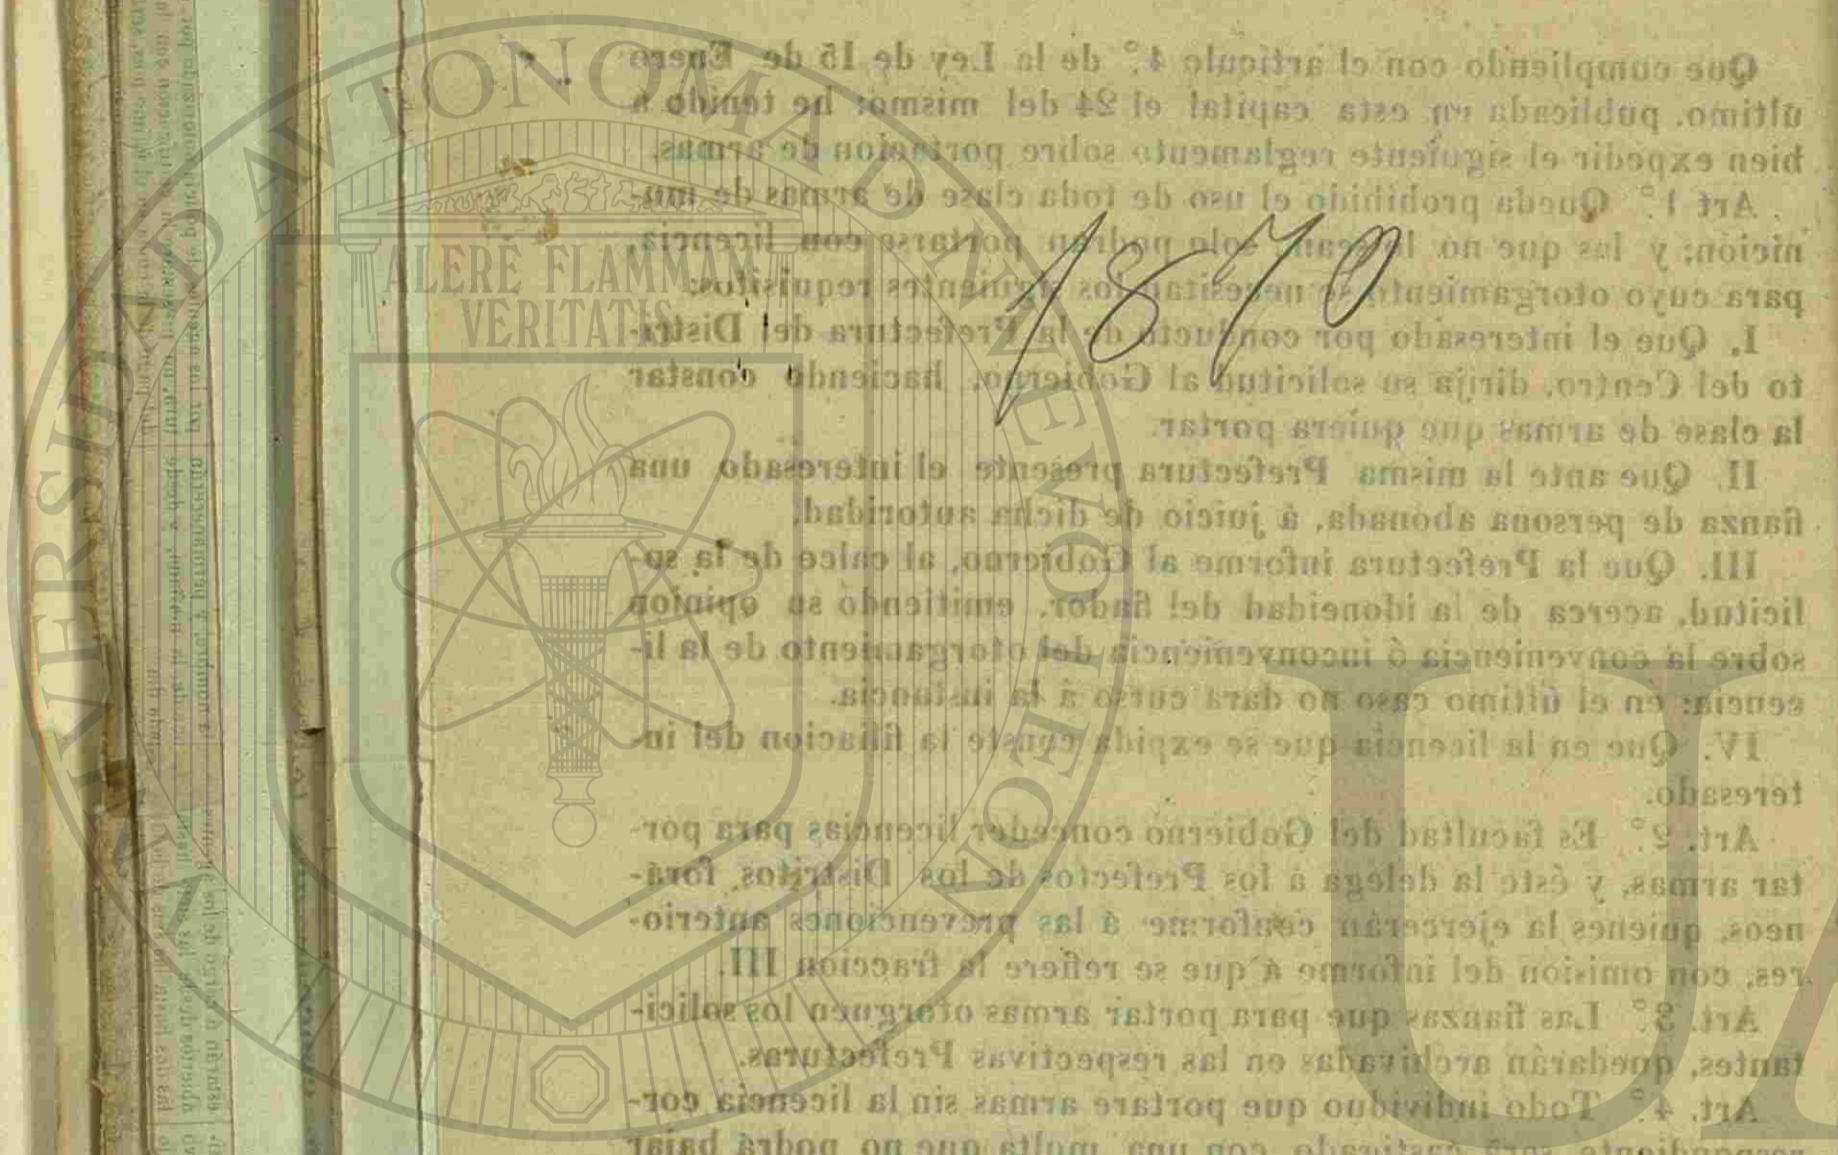 Que cumpliendo con el artículo 4.° de la Ley de 15 de Enero
último, publicada en esta capital el 24 del mismo: he tenido á
bien expedir el siguiente reglamento sobre portacion de armas.
Art 1.° Queda prohibido el uso de toda clase de armas de mu-
nición; y las que no lo sean solo podrán portarse con licencia,
para cuyo otorgamiento se necesitan los siguientes requisitos:
I. Que el interesado por conducto de la Prefectura del Distri-
to del Centro, dirija su solicitud al Gobierno, haciendo constar
la clase de armas que quiera portar.
II. Que ante la misma Prefectura presente el interesado una
fianza de persona abonada, á juicio de dicha autoridad.
III. Que la Prefectura informe al Gobierno, al calce de la so-
licitud, acerca de la idoneidad del fiador, emitiendo su opinion
sobre la conveniencia ó inconveniencia del otorgamiento de la li-
cencia; en el último caso no dará curso á la instancia.
IV. Que en la licencia que se expida conste la filiacion del in-
teresado.
Art. 2.° Es facultad del Gobierno conceder licencias para por-
tar armas, y éste la delega á los Prefectos de los Distritos forá-
neos, quienes la ejercerán conforme á las prevenciones anterio-
res, con omisión del informe á que se refiere la fraccion III.
Art. 3.° Las fianzas que para portar armas otorguen los solici-
tantes, quedarán archivadas en las respectivas Prefecturas.
Art. 4.° Todo individuo que portare armas sin la licencia cor-
respondiente, será castigado con una multa que no podrá bajar
1870
ALERE FLAMMAM
VERITATIS
UNIVERSIDAD AVTONOMA DE NVEVO LEON
UA